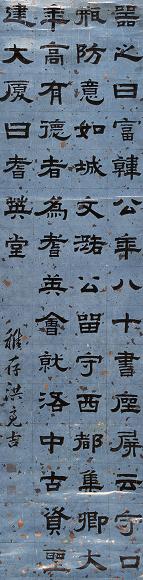 器之曰富韓公年八十書座屏云守口
瓶防意如城文潞公留守西都集卿大
年高有德者為耆英會就洛中古資聖
建大廈曰耆英堂
稚存洪亮吉